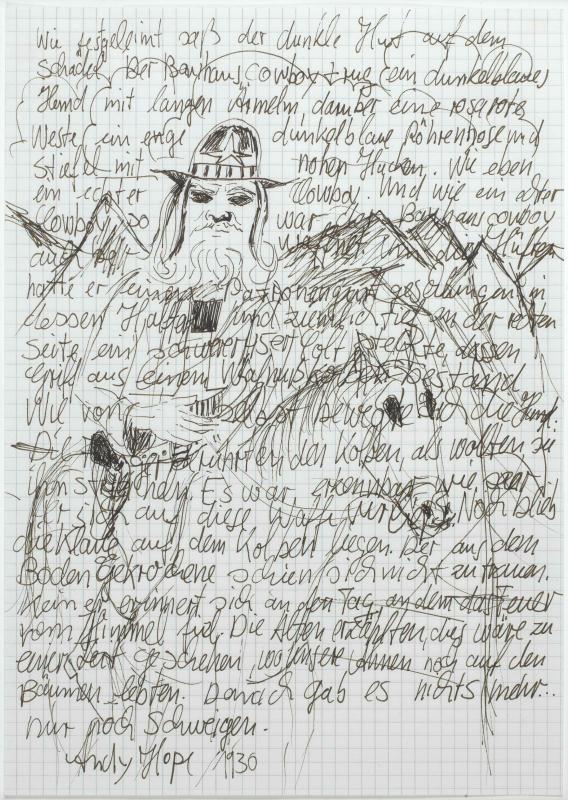 Wie festgeleimt saß der dunkle Hut auf dem
Schädel. Der Bauhauscowboy trug ein dunkelblaues
Hemd mit langen Ärmeln, darüber eine rosarote
Weste, ein enge dunkelblaue Röhrenhose und
Stiefel mit hohen Hacken. Wie eben
ein echter Cowboy. Und wie ein alter
Cowboy so war der Bauhauscowboy
auch um die Hüften
hatte er einen Patronengurt geschlungen, in
dessen Halfter rund ziemlich tief an der rechten
Seite ein schwerer Colt steckte, dessen
Griff aus einem Walnußkolben bestand
Wie von selbst bewegte sich die Hand.
Die berührten den Kolben, als wollten sie
ihn streicheln. Es war erkennbar wie sehr
er sich auf diese Waffe Noch blieb
die Klaue auf dem Kolben liegen. Der aus dem
Boden Gekrochene schien sich nicht zu trauen.
Klein er erinnert sich an den Tag, an dem das Feuer
vom Himmel fiel. Die Alten erzählten, dies wäre zu
einer Zeit geschehen, wo unsere Ahnen noch auf den
Bäumen lebten. Danach gab es nichts mehr..
nur noch Schweigen.
Andy Hope 1930